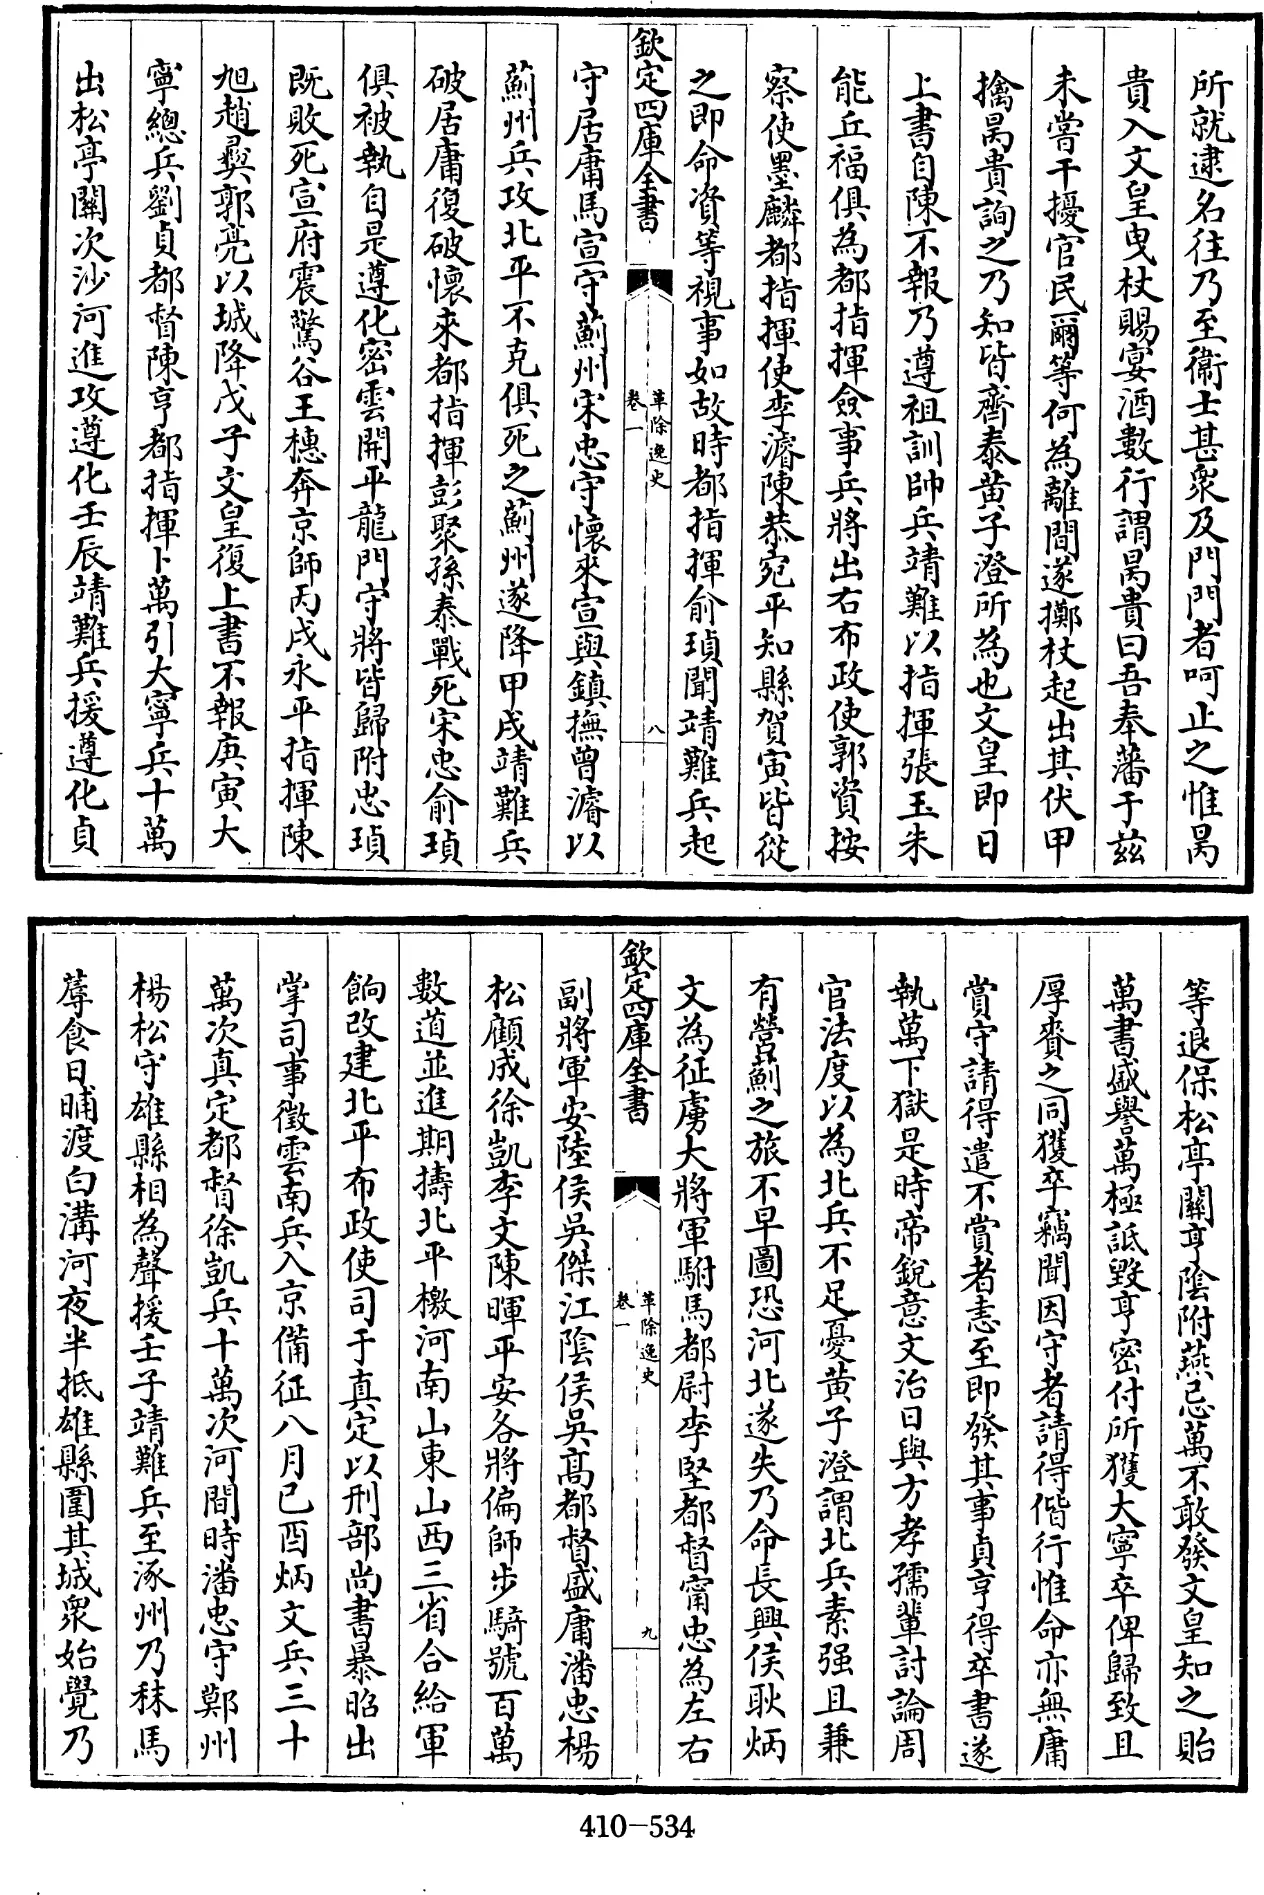 所就逮名往乃至衛士甚衆及門門者呵止之惟昺
貴入文皇曳杖賜宴酒數行謂昺貴曰吾奉藩于茲
未嘗干擾官民爾等何為離間遂擲杖起出其伏甲
擒昺貴詢之乃知皆齊泰黄子澄所為也文皇即日
上書自陳不報乃遵祖訓帥兵靖難以指揮張玉朱
能丘福俱為都指揮僉事兵將出右布政使郭資按
察使墨麟都指揮使李濬陳恭宛平知縣賀寅皆從
之即命資等視事如故時都指揮俞瑱聞靖難兵起
欽定四庫全書
革除逸史
卷一
八
守居庸馬宣守薊州宋忠守懷來宣與鎮撫曾濬以
薊州兵攻北平不克俱死之薊州遂降甲戌靖難兵
破居庸復破懷來都指揮彭聚孫泰戰死宋忠俞瑱
俱被執自是遵化密雲開平龍門守將皆歸附忠瑱
既敗死宣府震驚谷王橞奔京師丙戌永平指揮陳
旭趙彞郭亮以城降戊子文皇復上書不報庚寅大
寧總兵劉貞都督陳亨都指揮卜萬引大寧兵十萬
出松亭關次沙河進攻遵化壬辰靖難兵援遵化貞
等退保松亭關亨陰附燕忌萬不敢發文皇知之貽
萬書盛譽萬極詆毀亨密付所獲大寧卒俾歸致且
厚賚之同獲卒竊聞因守者請得偕行惟命亦無庸
賞守請得遣不賞者恚至即發其事貞亨得卒書遂
執萬下獄是時帝銳意文治日與方孝孺輩討論周
官法度以為北兵不足憂黄子澄謂北兵素强且兼
有營薊之旅不早圖恐河北遂失乃命長興侯耿炳
文為征虜大將軍駙馬都尉李堅都督甯忠為左右
欽定四庫全書
革除逸史
卷一
九
副將軍安陸侯吳傑江陰侯吳高都督盛庸潘忠楊
松顧成徐凱李文陳暉平安各將偏師步騎號百萬
數道並進期擣北平檄河南山東山西三省合給軍
餉改建北平布政使司于真定以刑部尚書暴昭出
掌司事徵雲南兵入京備征八月己酉炳文兵三十
萬次真定都督徐凱兵十萬次河間時潘忠守鄭州
楊松守雄縣相為聲援壬子靖難兵至涿州乃秣馬
蓐食日晡渡白溝河夜半抵雄縣圍其城衆始覺乃
410-534